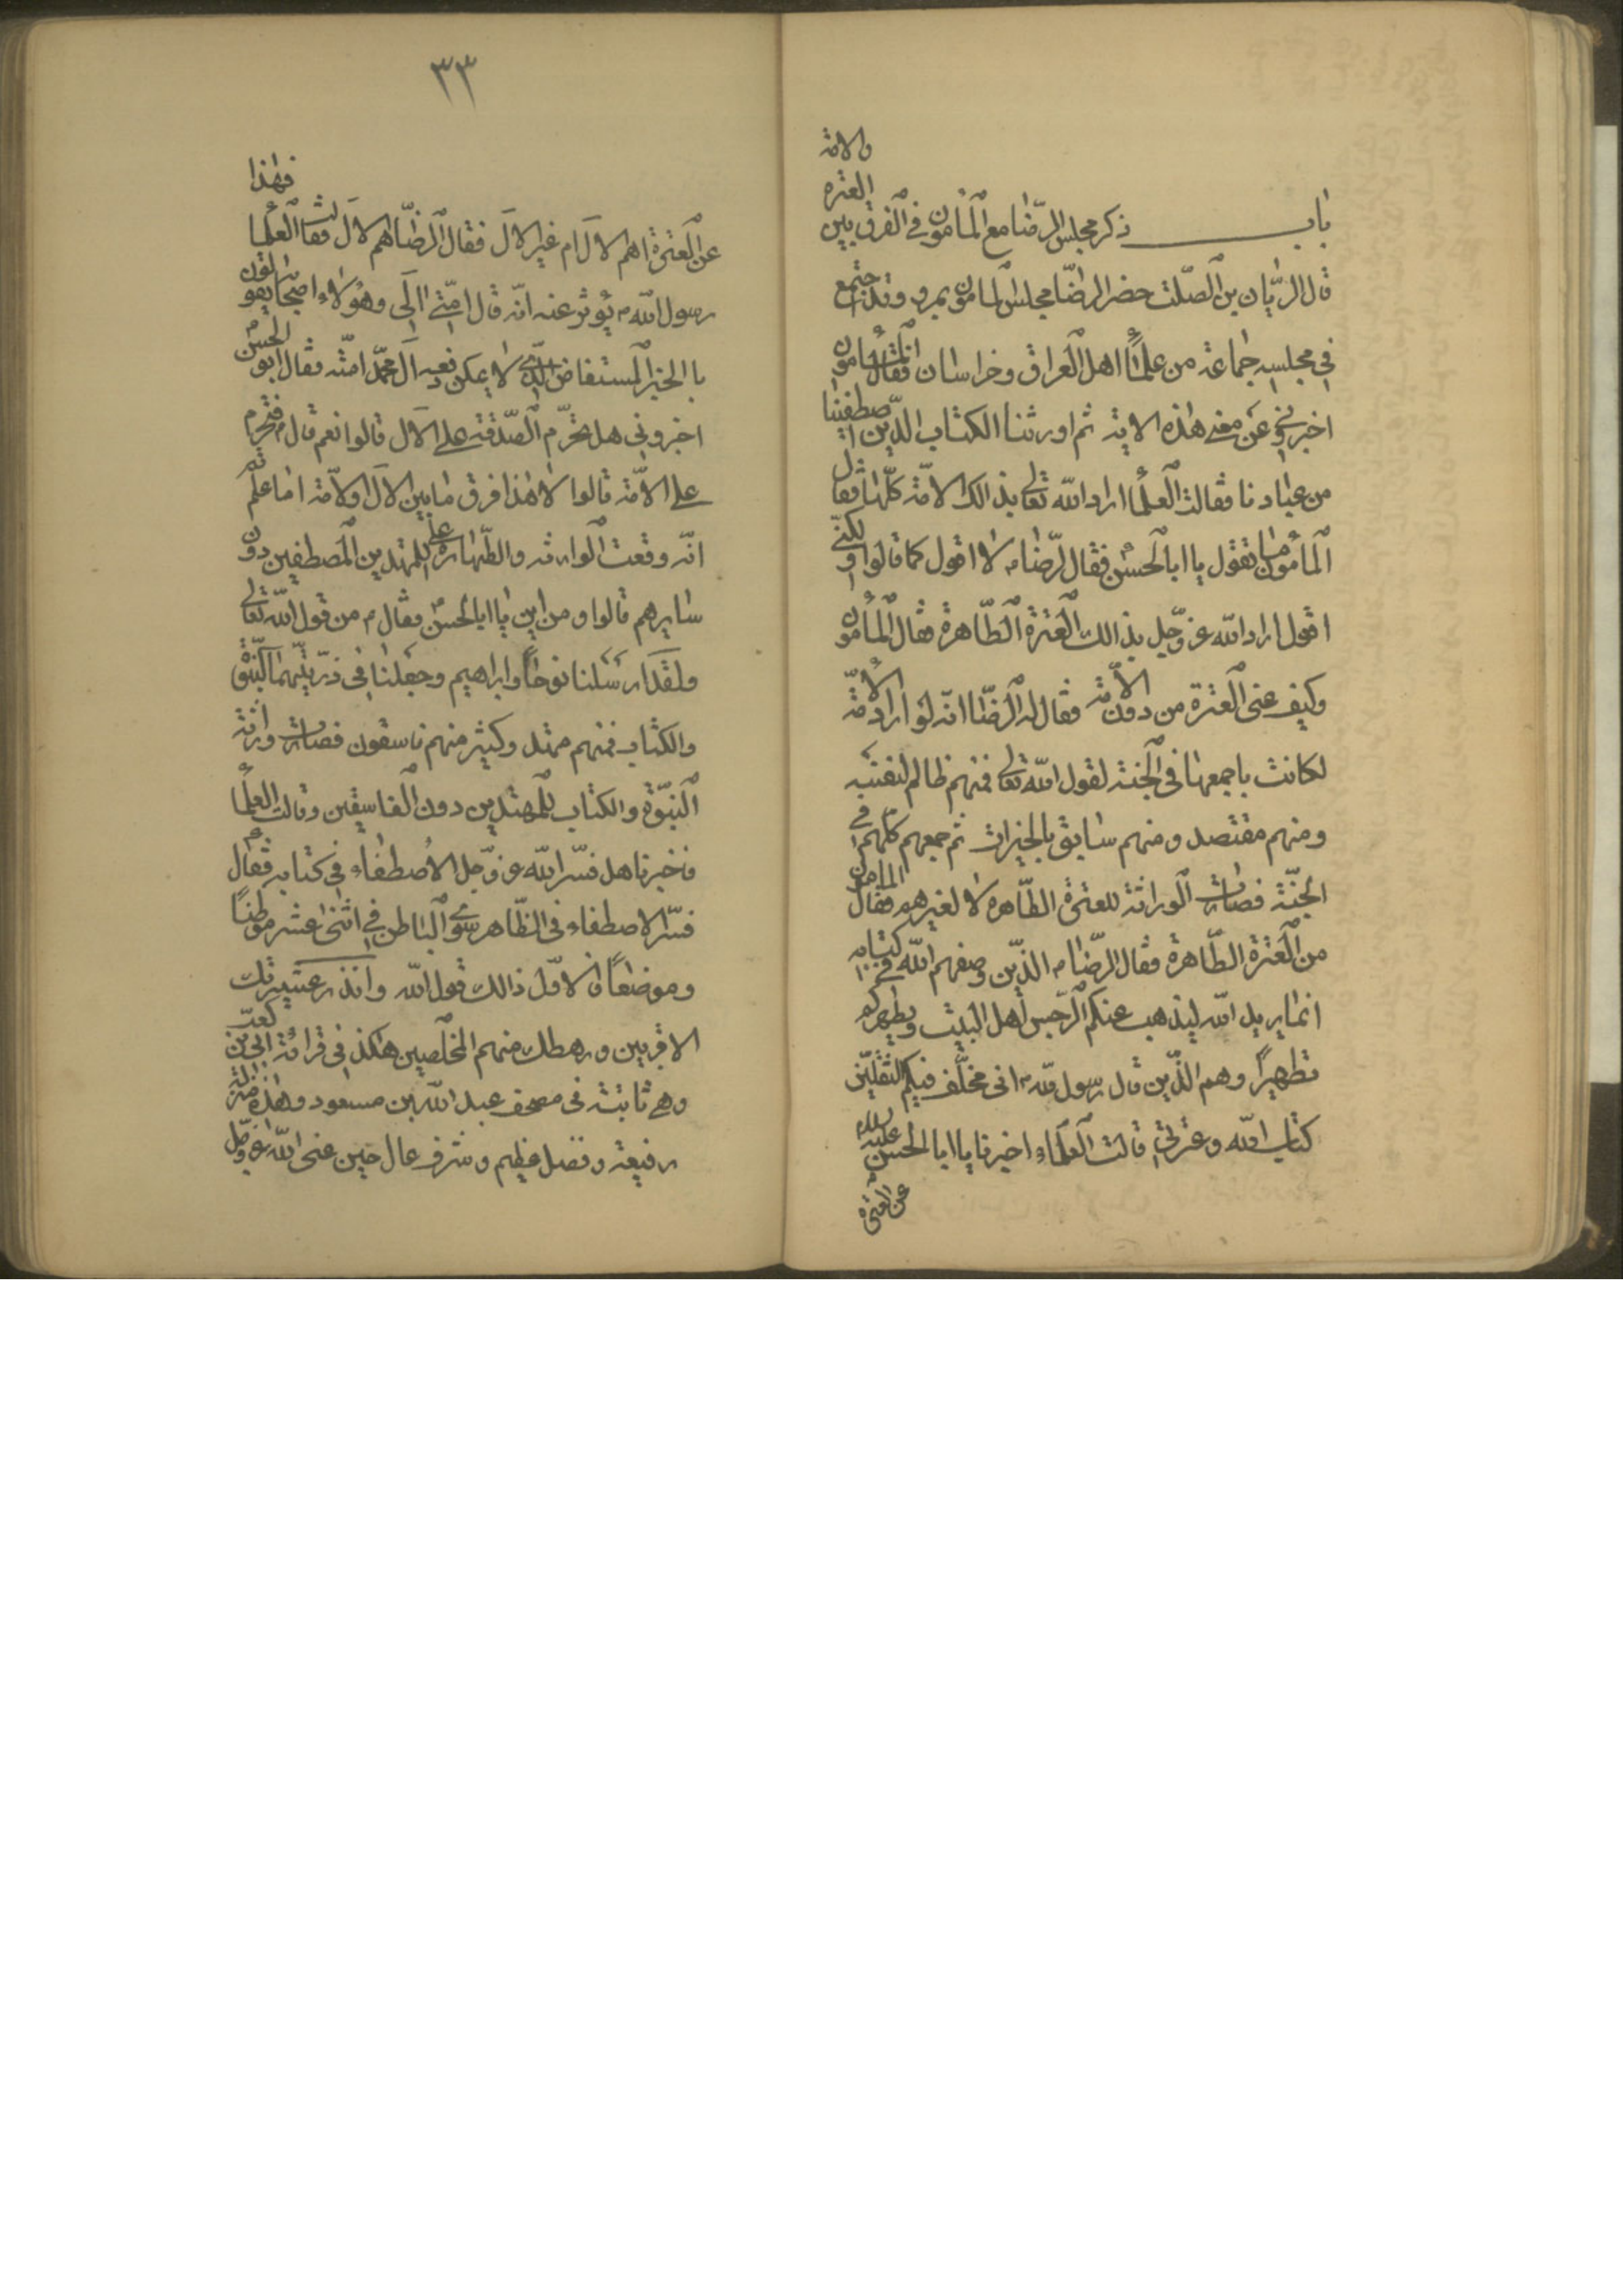 باب ذكر مجلس الرّضا مع المأمون في الفرق بين العتره والامة
قال الريّان بن الصّلت حضر الرضّا مجلس المامون بمرو وقد اجتمع
في مجلسه جماعة من علماء اهل العراق وخراسان فقال المأمون
اخبروني عن معنى هذه الاية ثم اورثنا الكتاب الذين اصطفينا
من عبادنا فقالت العلما اراد الله تعالى بذالك الامّة كلّها فقال
المأمون ما تقول يا ابا الحسن فقال الرّضا م لا اقول كما قالوا ولكنّي
اقول اراد الله عز وجل بذالك العترة الطّاهرة فقال المأمون
وكيف عنى العترة من دون الأمة فقال له الرضّا انّه لو اراد الأمّة
لكانت باجمعها في الجنة لقول الله تعالى فمنهم ظالم لنفسه
ومنهم مقتصد ومنهم سابق بالخيرات ثم جمعهم كلّهم في
الجنّة فصارت الوراثة للعترة الطّاهرة لا لغيرهم فقال المامون
من العترة الطّاهرة فقال الرّضا م الذّين وصفهم الله في كتابه
انما يريد الله ليذهب عنكم الرّجس أهل البيت ويطهركم
تطهيرًا وهم الذّين قال رسول الله م انى مخلّف فيكم الثقلين
كتاب الله وعترتي قالت العلماء اخبرنا يا ابا الحسن عليه السلام
عن العترة
٣٣
عن العترة اهم الال ام غير الال فقال الرضّا هم الال فقالت العلما فهذا
رسول الله م يؤثر عنه انّه قال امّتي الى وهؤلاء اصحابه يقولون
با الخبر المستفاض الّذي لا يمكن دفعه آل محمّد امّته فقال ابو الحسن م
اخبروني هل تحرّم الصّدقة على الال قالوا نعم قال م فتحرم
على الامّة قالوا لا هذا فرق ما بين الال ولامّة اما علمتم
انّه وقعت الوارثه والطّهارة على للمهتدين المصطفين دون
سايرهم قالوا ومن اين يا ابا الحسن م فقال م من قول الله تعالى
ولقد ارسلنا نوحًا وابراهيم وجعلنا في ذرّيّتهما النبّوة
والكتاب فمنهم مهتد وكثير منهم فاسقون فصارت وراثة
النبّوة والكتاب للمهتدين دون الفاسقين وقالت العلما
فخبرنا هل فسّر الله عز وجل الاصطفاء في كتابه فقال م
فسّر الاصطفاء في الظّاهر سوى الباطن في اثنى عشر موطنًا
وموضعًا فالاوّل ذالك قول الله وانذر عشيرتك
الاقربين ورهطك منهم المخلصين هكذ في قرائة ابيّ بن كعب
وهي ثابتة في مصحف عبد الله بن مسعود وهذه منزلة
رفيعة وفضل عظيم وشرف عال حين عنى الله عز وجل